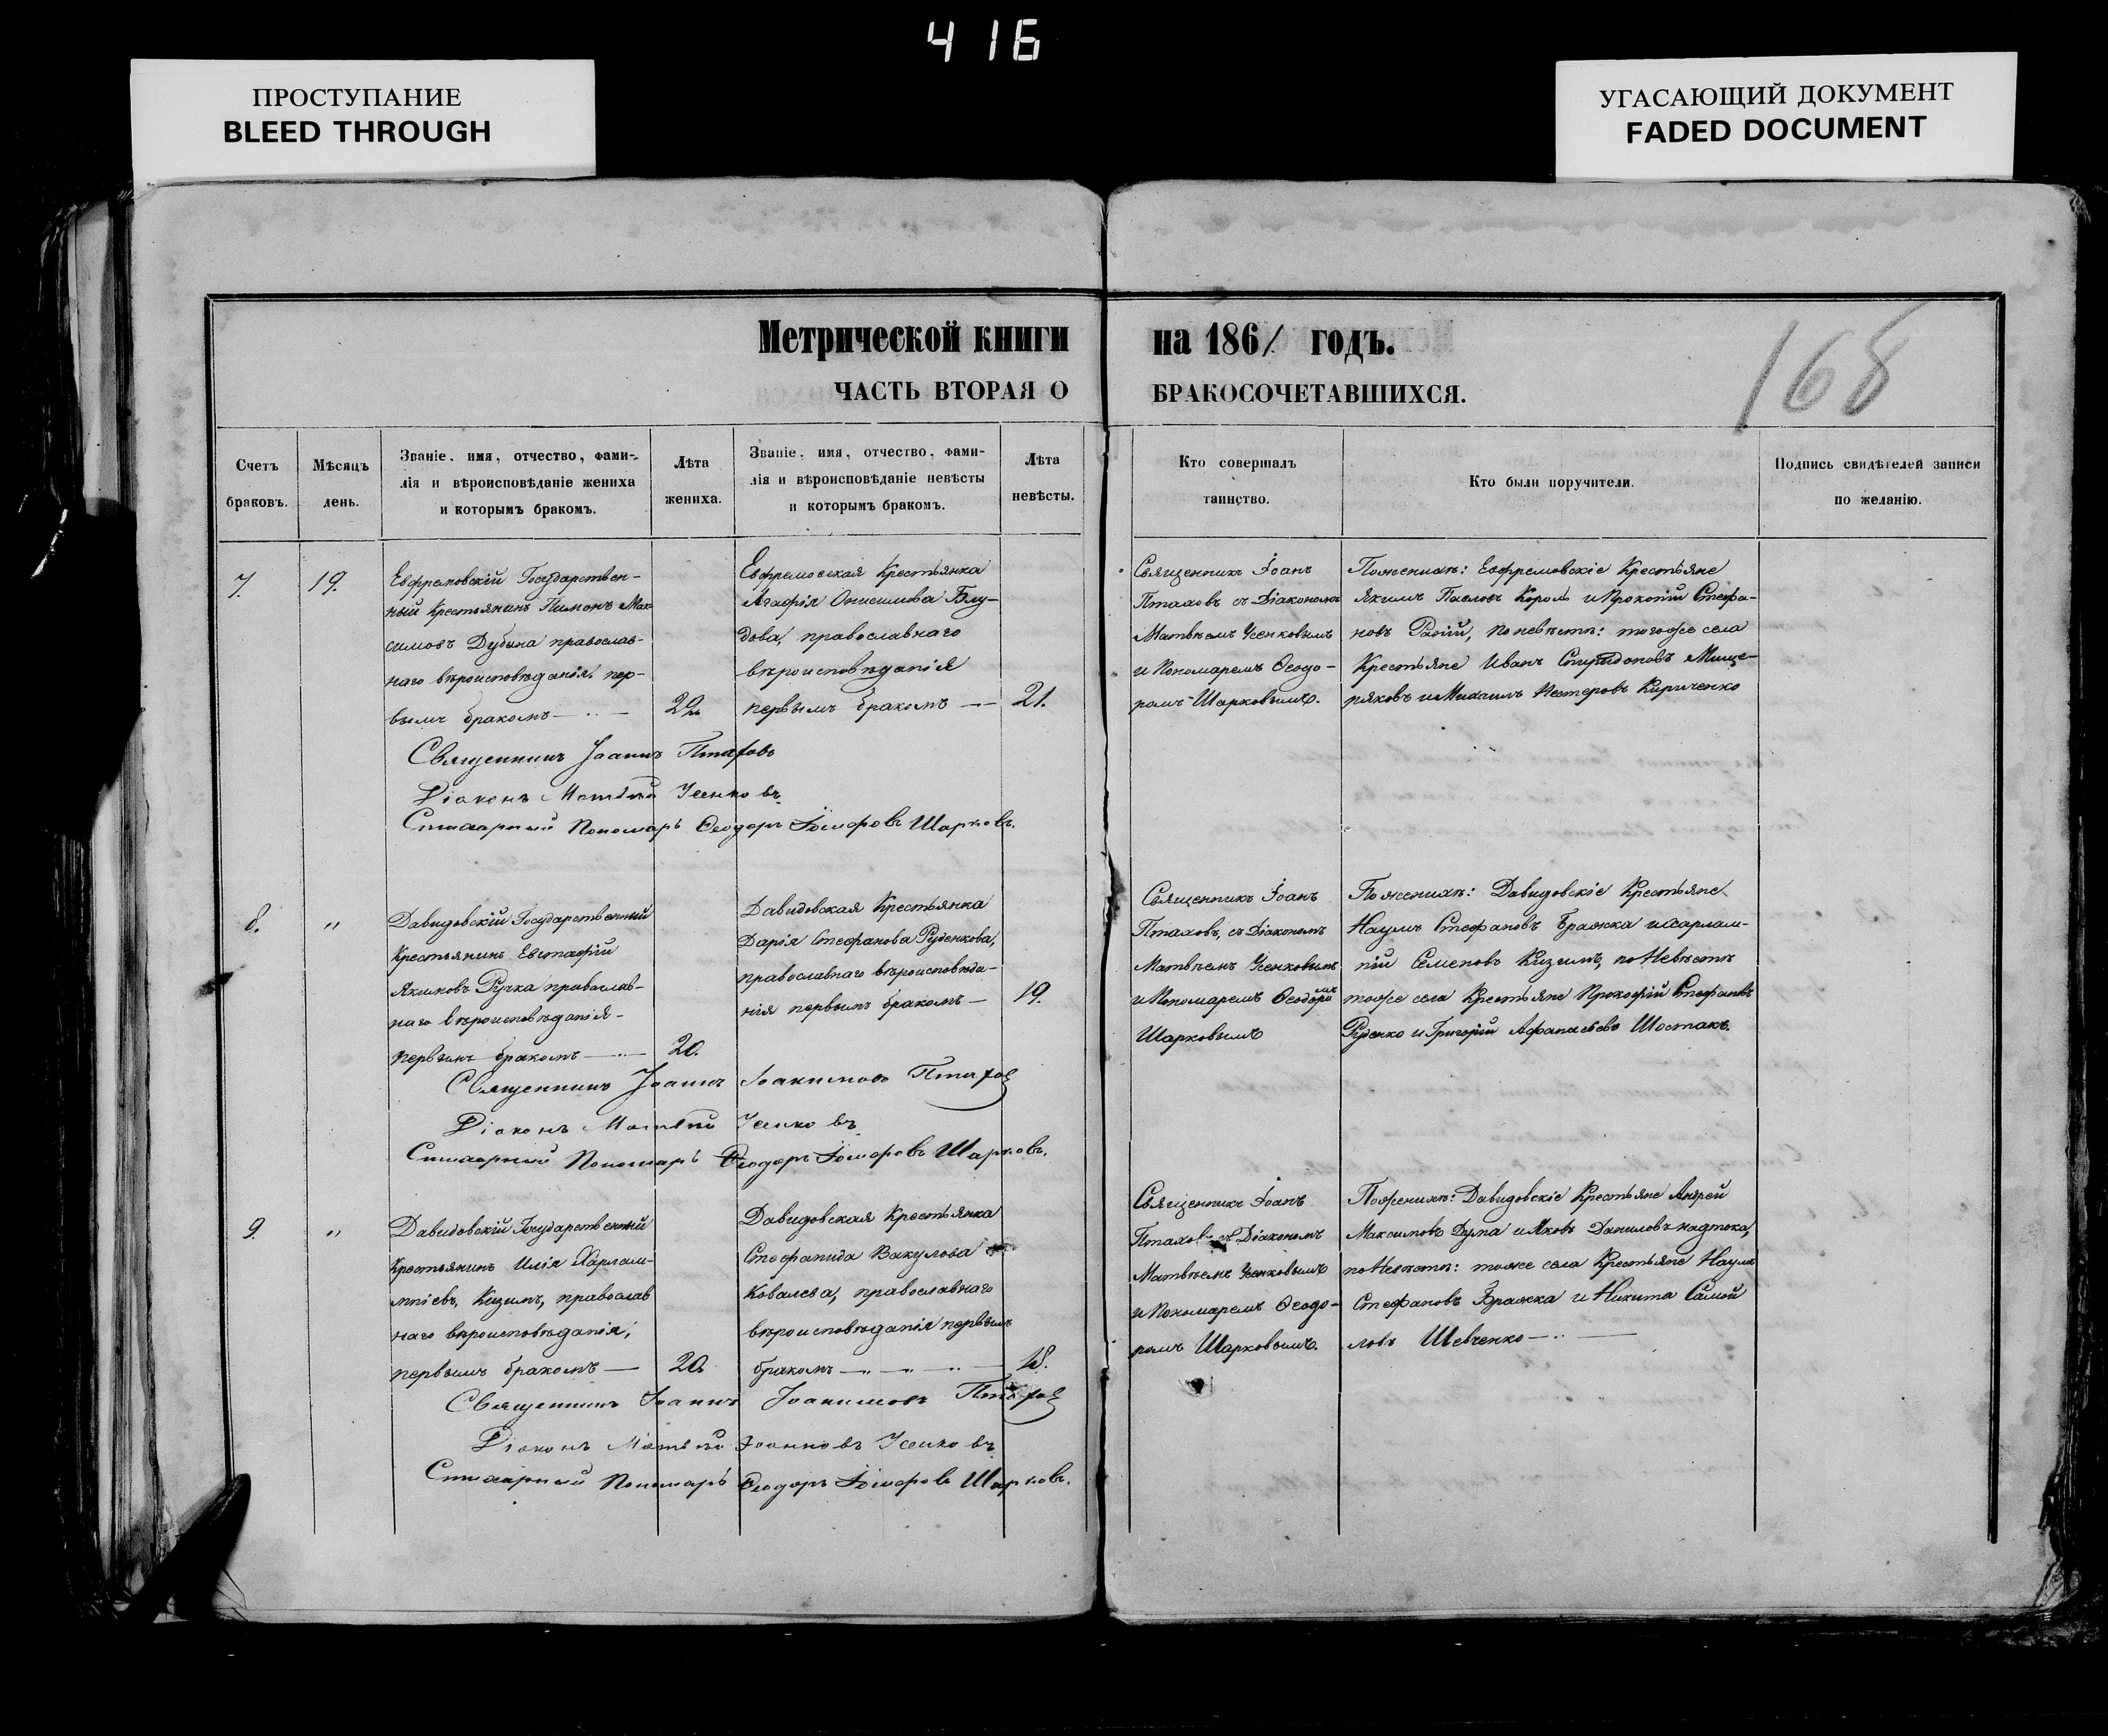 416
ПРОСТУПАНИЕ
BLEED THROUGH
УГАСАЮЩИЙ ДОКУМЕНТ
FADED DOCUMENT
168
Метрической книги на 1861 годъ.
ЧАСТЬ ВТОРАЯ О БРАКОСОЧЕТАВШИХСЯ.
Счетъ
браковъ.
Мѣсяцъ
день.
Званіе, имя, отчество, фами-
лія и вѣроисповѣданіе жениха
и которымъ бракомъ.
Лѣта
жениха.
Званіе, имя, отчество, фами-
лія и вѣроисповѣданіе невѣсты
и которымъ бракомъ.
Лѣта
невѣсты.
Кто совершалъ
таинство.
Кто были поручители.
Подпись свидѣтелей записи
по желанію.
7.
19.
Евфремовскій Государствен-
ный Крестьянинъ Пимонъ Мак-
симовъ Дубина православ-
наго вѣроисповѣданія, пер-
вымъ бракомъ
22.
Евфремовская Крестьянка
Агафія Онисимова Блу-
дова, православнаго
вѣроисповѣданія
первымъ бракомъ
21.
Священникъ Іоанъ
Птаховъ съ Діакономъ
Матвѣемъ Усенковымъ
и Пономаремъ Ѳеодо-
ромъ Шарковымъ.
Пожениха: Евфремовскіе Крестьяне
Якимъ Павловъ Король и Прокопій Стефа-
новъ Поневѣстѣ: тогоже села
Крестьяне Иванъ Спиридоновъ Мище-
ряковъ и Михаилъ Нестеровъ Кириченко
Священникъ Іоаннъ Птаховъ
Діаконъ Матвѣй Усенковъ
Стихарный Пономарь Ѳеодоръ Шарковъ.
8.
"
Давидовскій Государственный
Крестьянинъ Евстафій
Якимовъ Ручка православ-
наго вѣроисповѣданія
первымъ бракомъ
20.
Давидовская Крестьянка
Дарія Стефанова Руденкова,
православнаго вѣроисповѣда-
нія первымъ бракомъ
19.
Священникъ Іоанъ
Птаховъ, съ Діакономъ
Матвѣемъ Усенковымъ
и Пономаремъ Ѳеодоромъ
Шарковымъ
Пожениха: Давидовскіе Крестьяне
Наумъ Стефановъ Бражка и Харлам-
пій Семеновъ Кизимъ, поневѣстѣ
тоже села Крестьяне Прокофій Стефановъ
Руденко и Григорій Афанасьевъ Шостакъ.
Священникъ Іоаннъ Іоакимовъ Птаховъ
Діаконъ Матвѣй Усенковъ
Стихарный Пономарь Ѳеодоръ Шарковъ.
9.
"
Давидовскій Государственный
Крестьянинъ Илія Харлам-
піевъ, Кизимъ, православ
наго вѣроисповѣданія,
первымъ бракомъ
20.
Давидовская Крестьянка
Стефанида Вакулова
Ковалева, православнаго
вѣроисповѣданія первымъ
бракомъ
18.
Священникъ Іоанъ
Птаховъ съ Діакономъ
Матвѣемъ Усенковымъ
и Пономаремъ Ѳеодо-
ромъ Шарковымъ.
Пожениха: Давидовскіе Крестьяне Андрей
Максимовъ Дума и Яковъ Даниловъ надтока,
поневѣстѣ: тоже села Крестьяне Наумъ
Стефановъ Бражка и Никита Самой
ловъ Шевченко
Священникъ Іоаннъ Іоакимовъ Птаховъ
Діаконъ Матвѣй Іоанновъ Усенковъ
Стихарный Пономарь Ѳеодоръ Шарковъ.